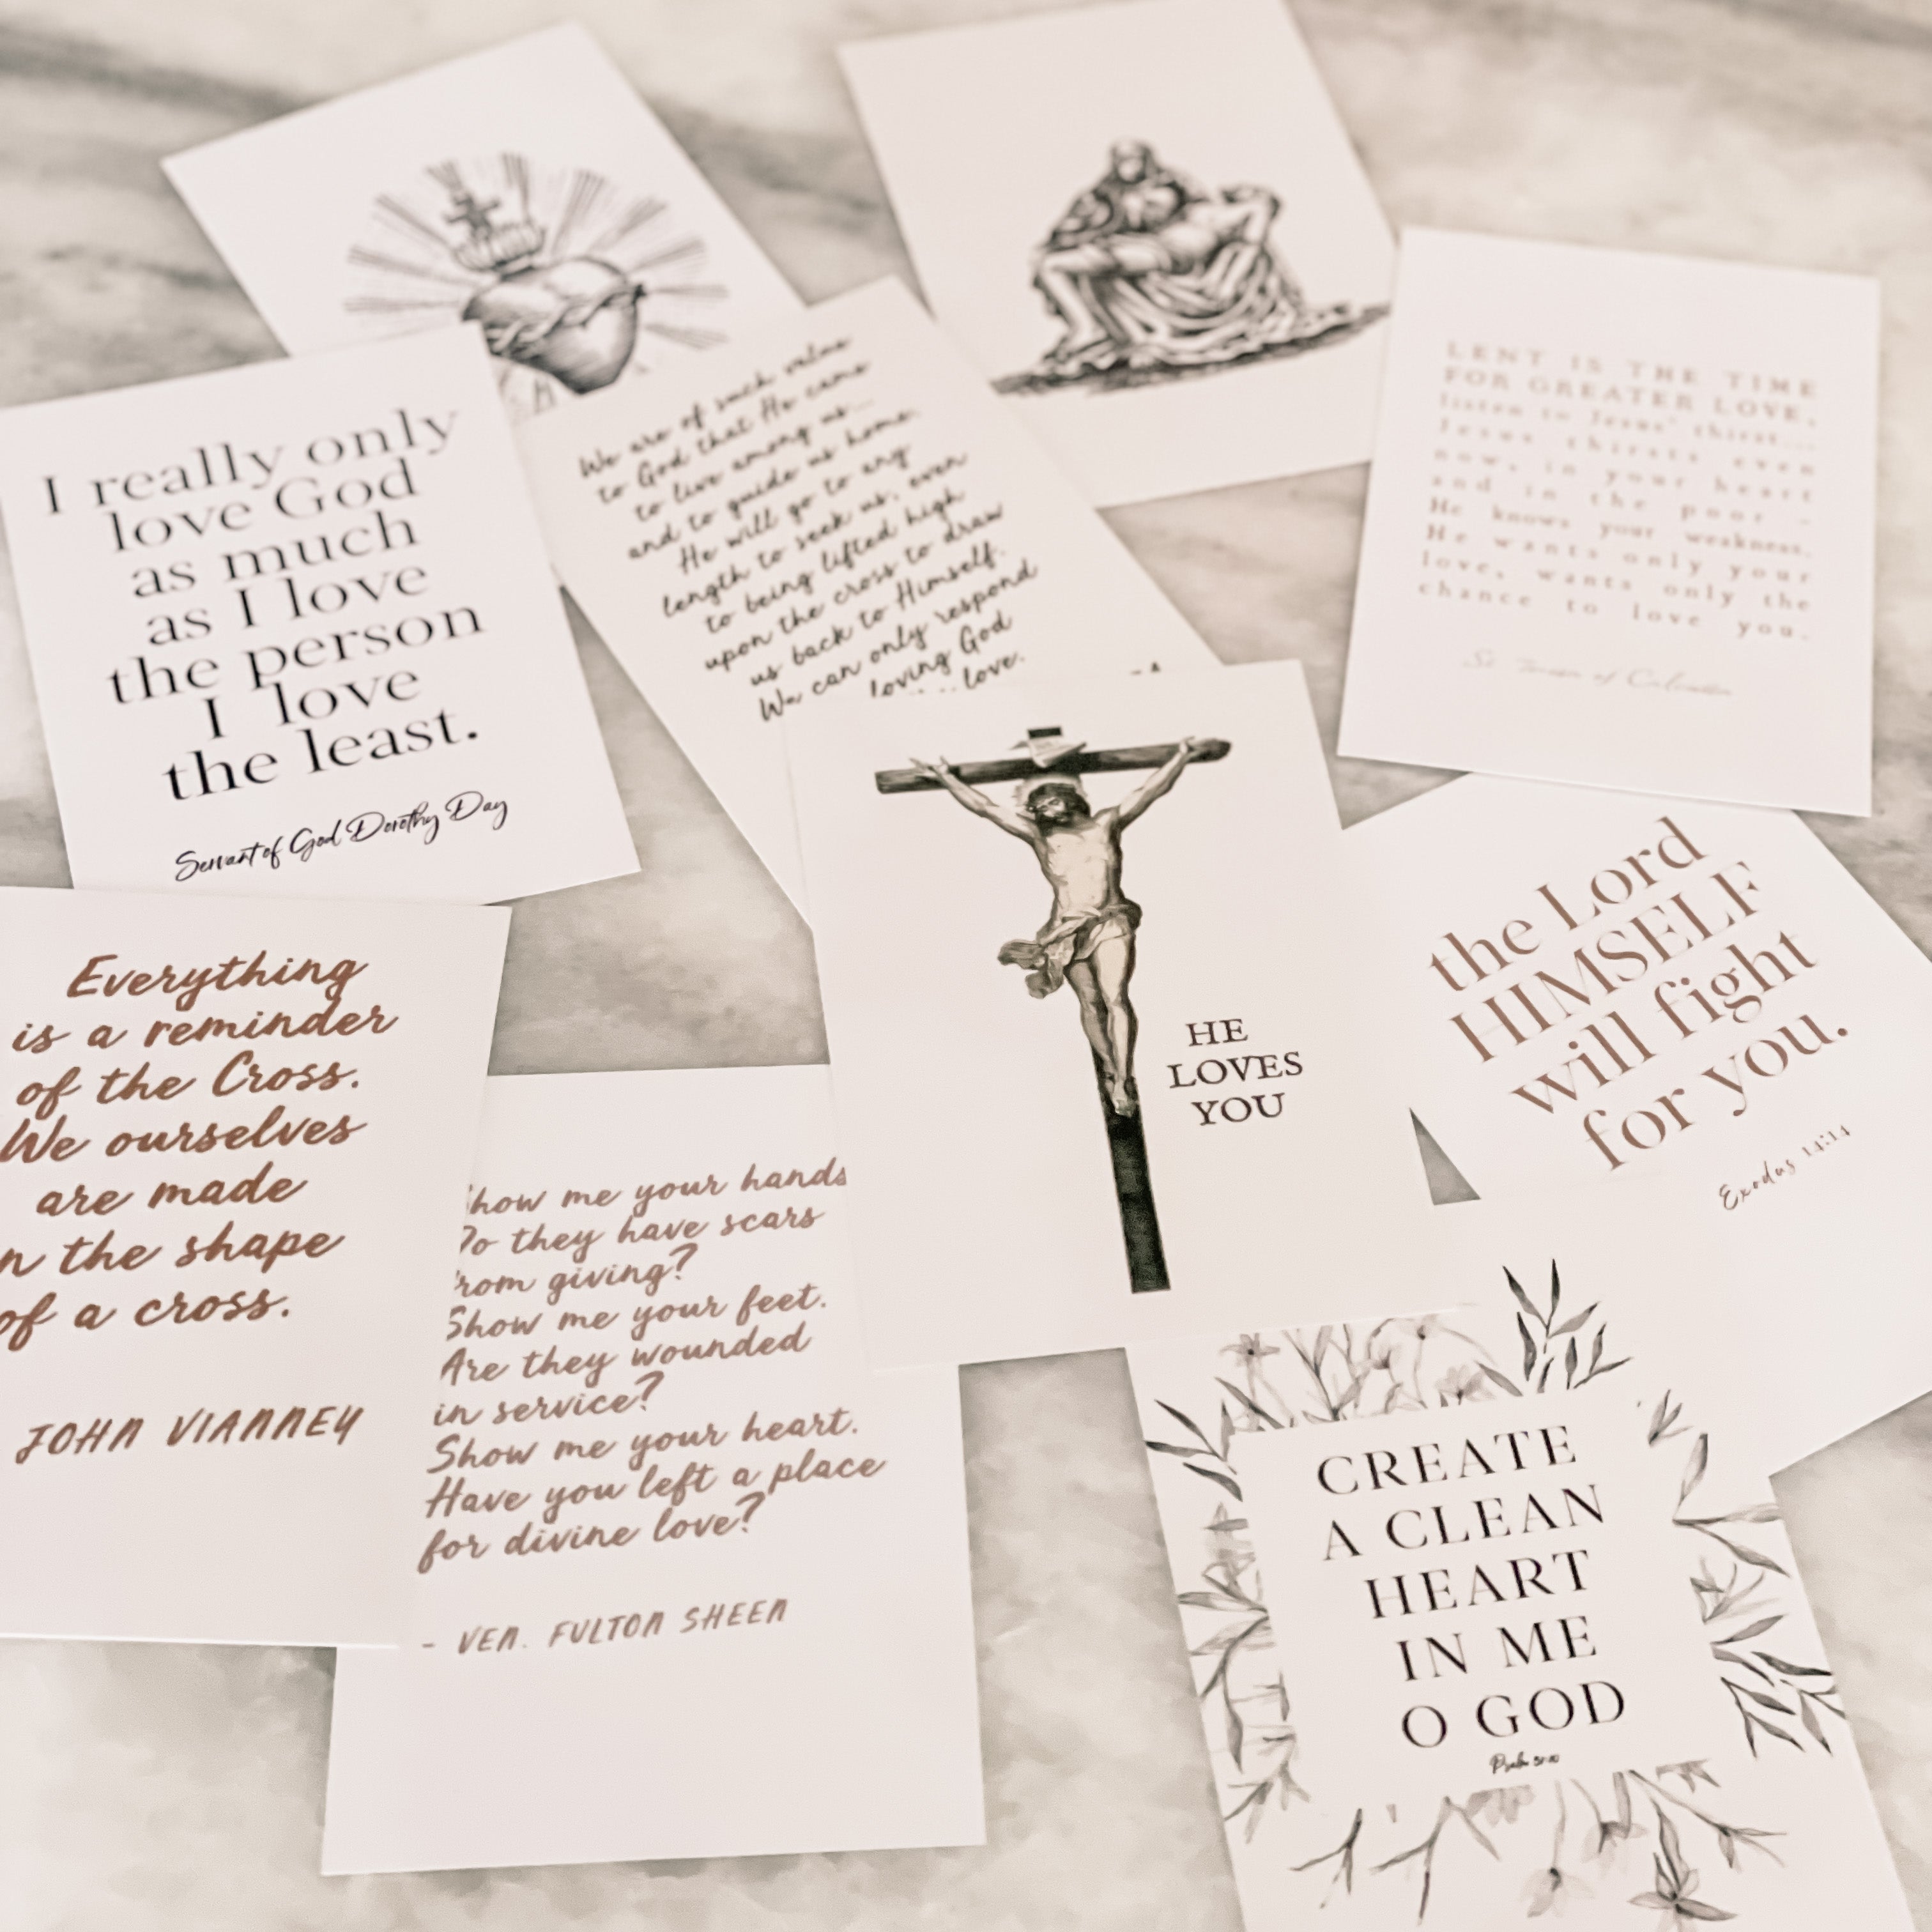 I really only
love God
as much
as I love
the person
I love
the least.
Servant of God Dorothy Day
We are of such value
to God that He came
to live among us...
and to guide us home.
He will go to any
length to seek us, even
to being lifted high
upon the cross to draw
us back to Himself.
We can only respond
loving God
love.
LENT IS THE TIME
FOR GREATER LOVE,
listen to Jesus' thirst...
Jesus thirsts even
now, in your heart
and in the poor -
He knows your weakness.
He wants only your
love, wants only the
chance to love you.
St. Teresa of Calcutta
HE
LOVES
YOU
the Lord
HIMSELF
will fight
for you.
Exodus 14:14
Everything
is a reminder
of the Cross.
We ourselves
are made
n the shape
of a cross.
JOHN VIANNEY
how me your hands
Do they have scars
from giving?
Show me your feet.
Are they wounded
in service?
Show me your heart.
Have you left a place
for divine love?
- VEN. FULTON SHEEN
CREATE
A CLEAN
HEART
IN ME
O GOD
Psalm 51:10